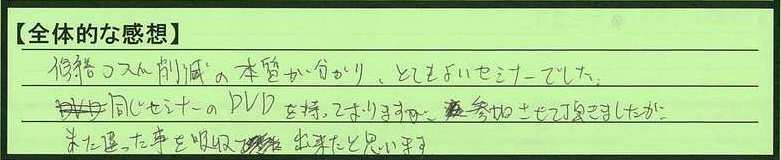 【全体的な感想】
修繕コスト削減の本質が分かり、とてもよいセミナーでした。
同じセミナーのDVDを持っておりますが、参加させて頂きましたが
また違った事を吸収出来たと思います